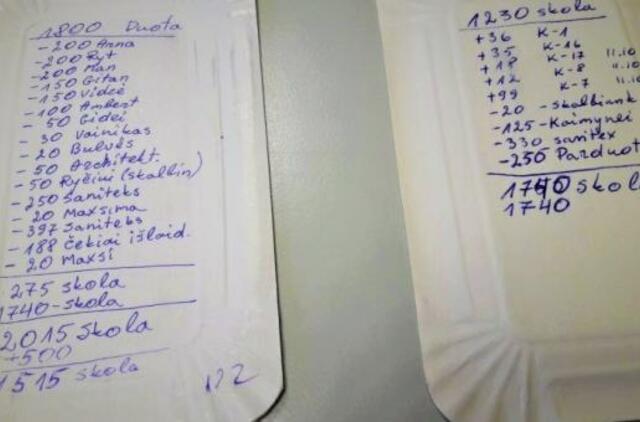 1800 Duota
-200 Anna
-200 Ryt
-200 Man
-150 Gitan
-150 Vidce
-100 Ambert
- 50 Gidei
- 30 Vainikas
- 20 Bulvės
- 50 Architekt.
- 50 Ryčini (skalbin)
- 250 Saniteks
- 20 Maxsima
- 397 Saniteks
- 188 Čekiai išlaid.
- 20 Maxsi
275 skola
1740-skola
2015 skola
+500
1515 skola
1230 skola
+36 K-1
+35 K-16
+18 K-17 11.10
+12 K-8 11.10
+99 K-7 11.10
-20 - skalbiank
-125-Kaimynei
-330 sanitex
-250 Parduot
1740 skol
1740